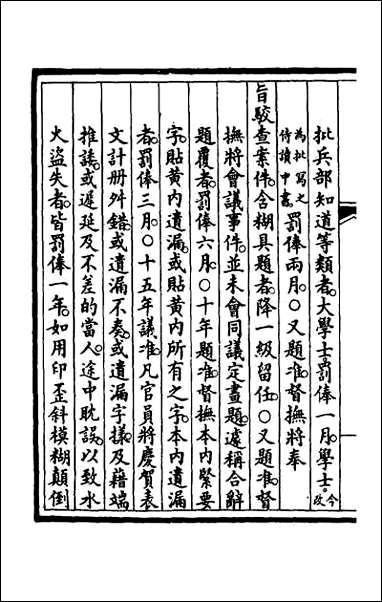 批兵部知道等類者大學士罰俸一月學士今改
為批寫之侍讀中書罰俸兩月○又題准督撫將奉
旨駮查案件含糊具題者降一級留任○又題准督
撫將會議事件並未會同議定畫題遽稱合辭
題覆者罰俸六月○十年題准督撫本內緊要
字貼黃內遺漏或貼黃內所有之字本內遺漏
者罰俸三月○十五年議准凡官員將慶賀表
文計册舛錯或遺漏不奏或遺漏字樣及藉端
推諉或遲延及不差的當人途中耽誤以致水
火盜失者皆罰俸一年如用印歪斜模糊顛倒